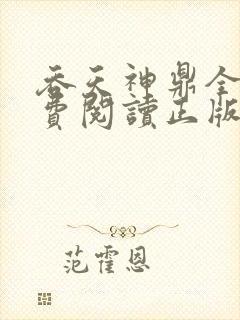 吞天神鼎全
費閱讀正版
范霍恩